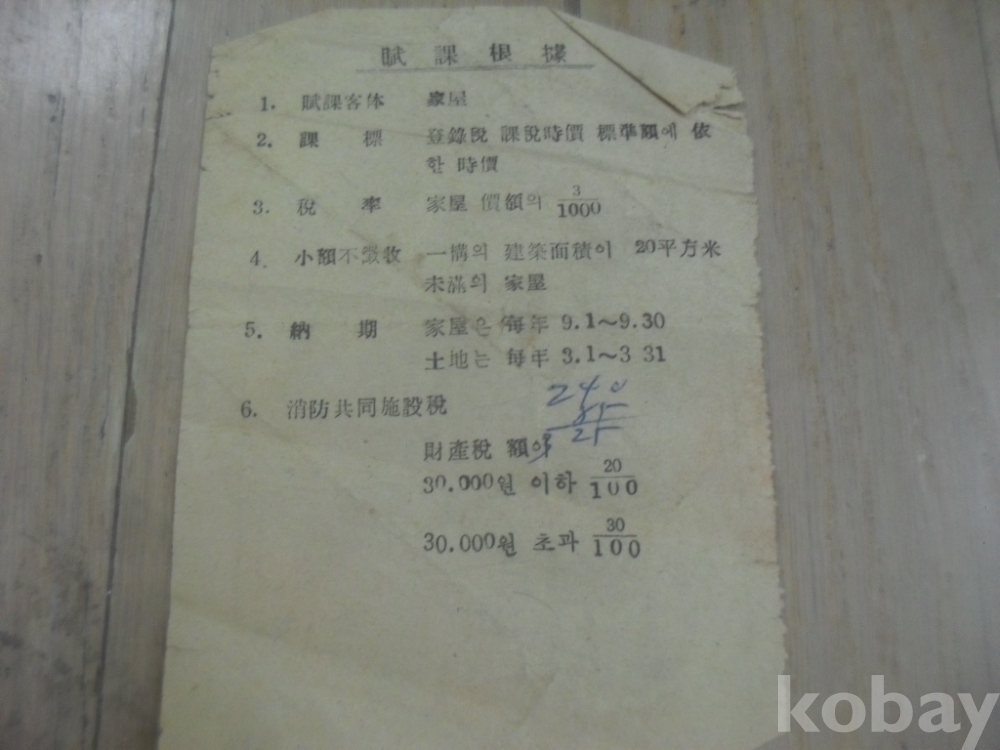 賦課根據
1. 賦課客体 家屋
2. 課 標 登錄稅 課稅時價 標準額에 依
한 時價
3. 稅 率 家屋 價額의 3/1000
4. 小額不徵收 一構의 建築面積이 20平方米
未滿의 家屋
5. 納 期 家屋은 每年 9.1~9.30
土地는 每年 3.1~3 31
6. 消防共同施設稅
240
25
財產稅 額의
30.000원 이하 20/100
30.000원 초과 30/100
kobay